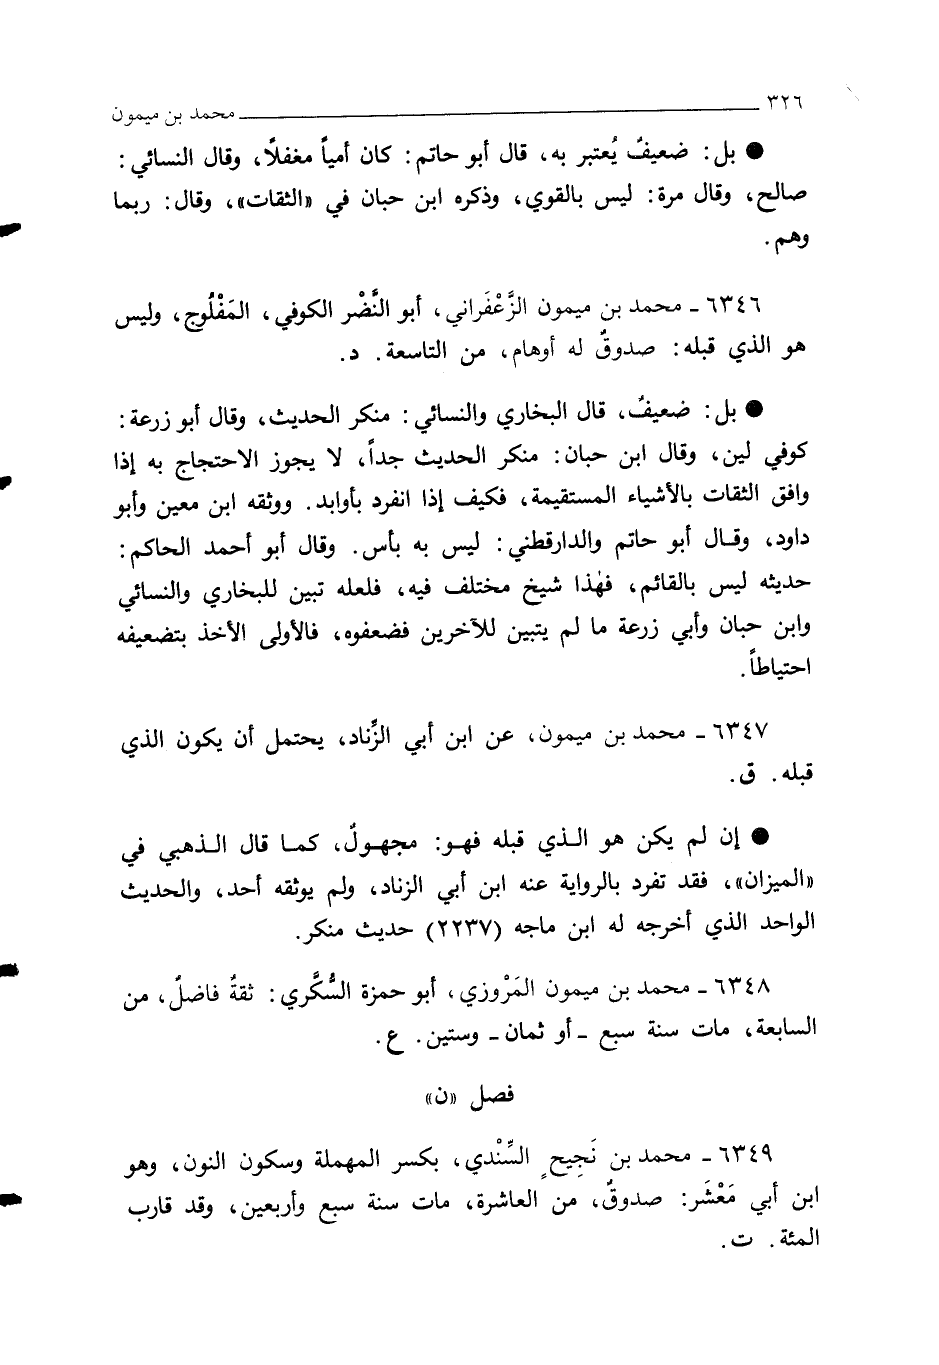 ٣٢٦ محمد بن ميمون
● بل: ضعيفٌ يُعتبر به، قال أبو حاتم: كان أمياً مغفلاً، وقال النسائي:
صالح، وقال مرة: ليس بالقوي، وذكره ابن حبان في «الثقات»، وقال: ربما
وهم.
٦٣٤٦ ـ محمد بن ميمون الزَّعْفَراني، أبو النَّضْر الكوفي، المَفْلُوج، وليس
هو الذي قبله: صدوقٌ له أوهام، من التاسعة. د.
● بل: ضعيفٌ، قال البخاري والنسائي: منكر الحديث، وقال أبو زرعة:
كوفي لين، وقال ابن حبان: منكر الحديث جداً، لا يجوز الاحتجاج به إذا
وافق الثقات بالأشياء المستقيمة، فكيف إذا انفرد بأوابد. ووثقه ابن معين وأبو
داود، وقال أبو حاتم والدارقطني: ليس به بأس. وقال أبو أحمد الحاكم:
حديثه ليس بالقائم، فهٰذا شيخ مختلف فيه، فلعله تبين للبخاري والنسائي
وابن حبان وأبي زرعة ما لم يتبين للآخرين فضعفوه، فالأولى الأخذ بتضعيفه
احتياطاً.
٦٣٤٧ ـ محمد بن ميمون، عن ابن أبي الزِّناد، يحتمل أن يكون الذي
قبله. ق.
● إن لم يكن هو الذي قبله فهو: مجهولٌ، كما قال الذهبي في
«الميزان»، فقد تفرد بالرواية عنه ابن أبي الزناد، ولم يوثقه أحد، والحديث
الواحد الذي أخرجه له ابن ماجه (٢٢٣٧) حديث منكر.
٦٣٤٨ ـ محمد بن ميمون المَرْوزي، أبو حمزة السُّكَّري: ثقةٌ فاضلٌ، من
السابعة، مات سنة سبع ـ أو ثمان ـ وستين. ع.
فصل «ن»
٦٣٤٩ ـ محمد بن نَجيحٍ السِّنْدي، بكسر المهملة وسكون النون، وهو
ابن أبي مَعْشَر: صدوقٌ، من العاشرة، مات سنة سبع وأربعين، وقد قارب
المئة. ت.